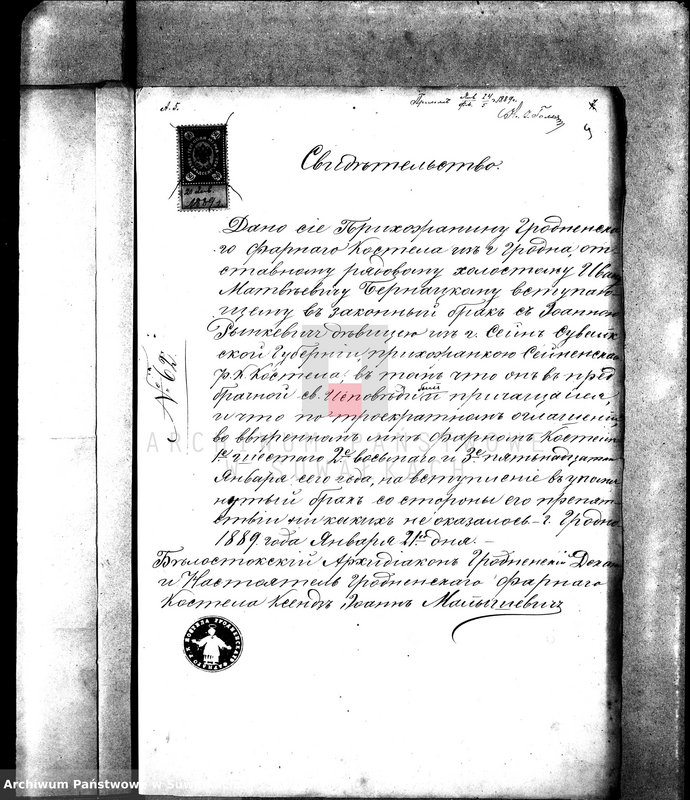 А. Б.
24
1889 г.
21 Янв.
1889
№ 62
Свидѣтельство.
Дано сіе Прихожанину Гродненска
го Фарнаго Костела изъ г. Гродна, от-
ставному рядовому холостому Ива
Матвѣевичу Бернацкому вступаю-
щему въ законный бракъ съ Іоанною
Рынкевичъ дѣвицею изъ г. Сейнъ Сувалк
ской Губерніи, прихожанкою Сейненска
Р. К. Костела, въ томъ что онъ въ пред
брачной св. Исповѣди былъ пріобщался,
и что по троекратномъ оглашеніи
во ввѣренномъ мнѣ Фарномъ Костелѣ
1е шестаго 2е восьмаго и 3е пятнадцатаго
Января сего года, на вступленіе въ упомя
нутый бракъ со стороны его препят
ствій ни какихъ не оказалось. г. Гродно
1889 года Января 21го дня.
Бѣлостокскій Архидіаконъ Гродненскій Декан
и Настоятель Гродненскаго Фарнаго
Костела Ксендзъ Іоаннъ Малышевичъ
ARCHIWUM PAŃSTWOWE
W SUWAŁKACH
Archiwum Państwowe w Suw